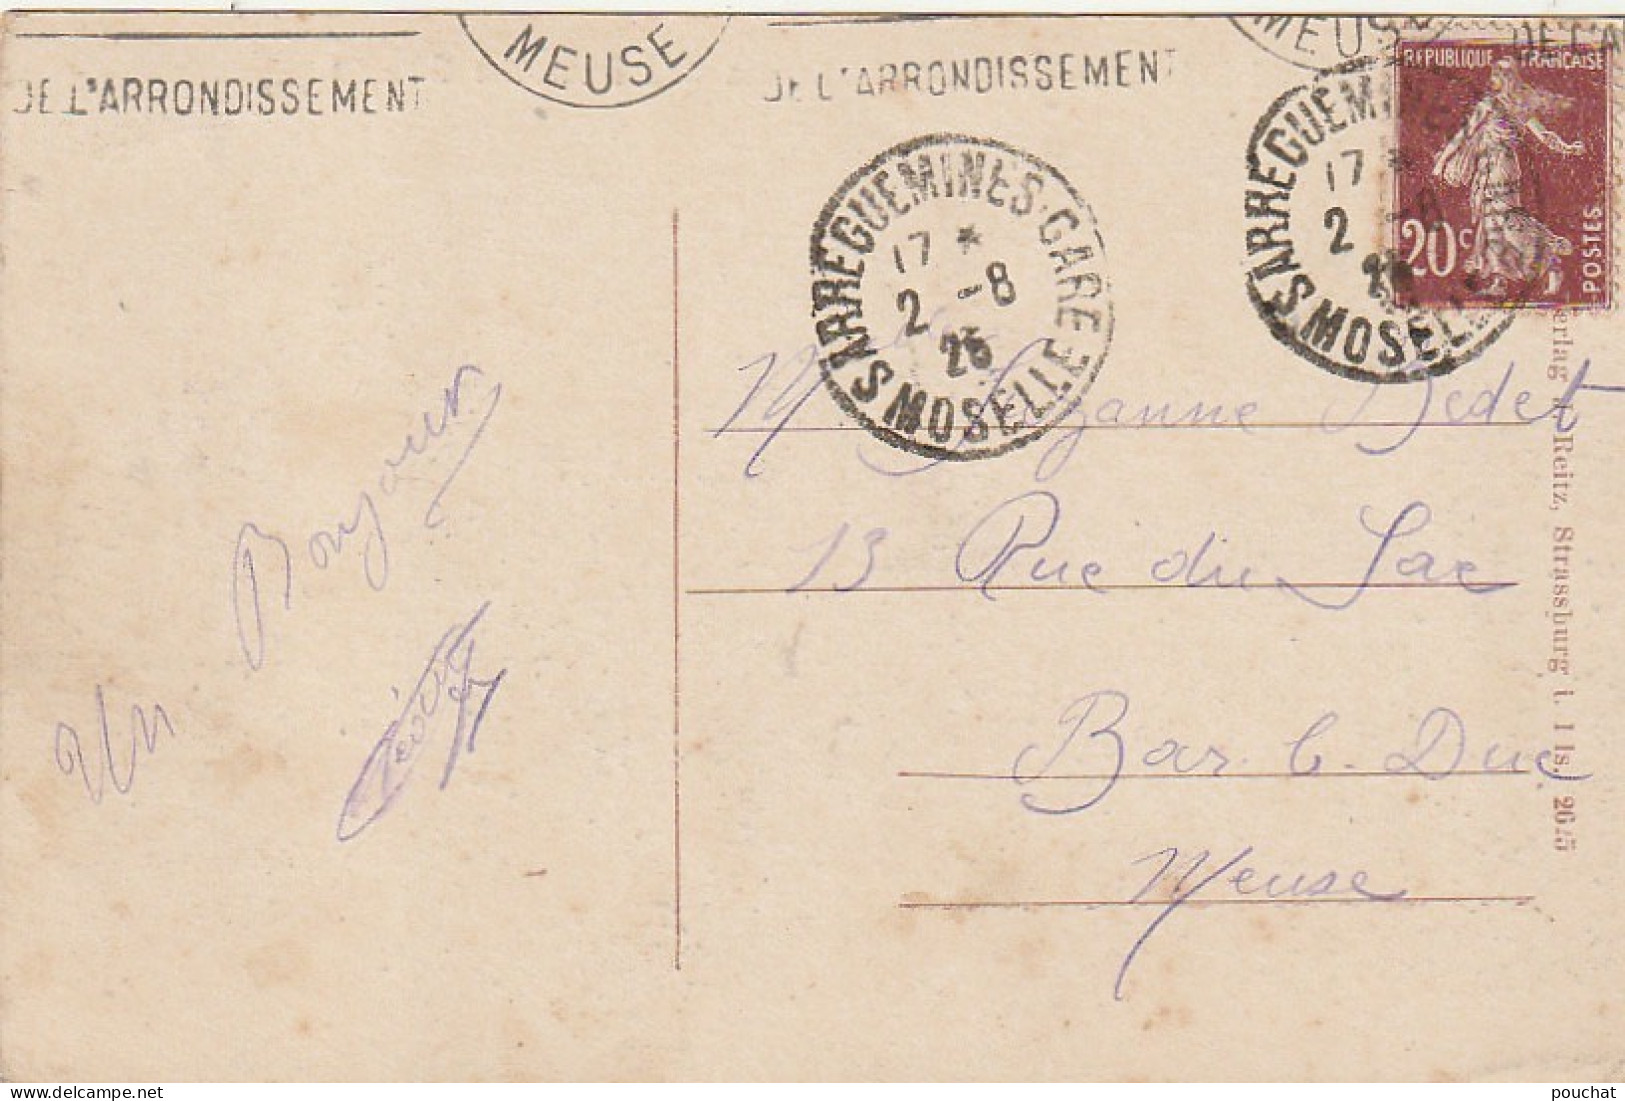 MEUSE
DE L'ARRONDISSEMENT
DE L'ARRONDISSEMENT
MEUSE
DE L'A
REPUBLIQUE FRANÇAISE
20c
POSTES
SARREGUEMINES-GARE
17 *
2 -8
25
MOSELLE
SARREGUEMINES
17 *
2 -8
MOSELLE
Un Bonjour
Mlle Suzanne Dedet
13 Rue du Lac
Bar-l-Duc
Meuse
Reitz, Strassburg i. Els. 2675
pouchat